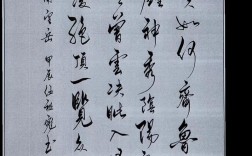 如何齊魯
鍾神秀陰陽
曾雲決眥入
凌絕頂一覽眾
望岳 甲辰